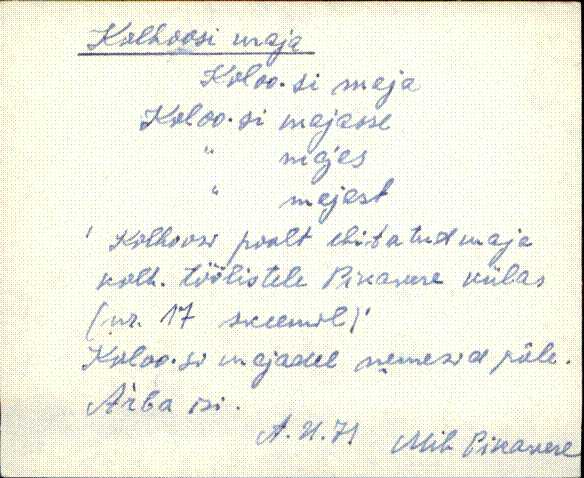 Kolhoosi maja
Koloo·si maja
Koloo·si majasse
" majas
" majast
' Kolhoosi poolt ehitatud maja
kolh. töölistele Pikavere külas
(nr. 17 skeemil)'
Koloo·si majadel nemesid põle.
Ärba isi.
A.U. 71 Mih Pikavere